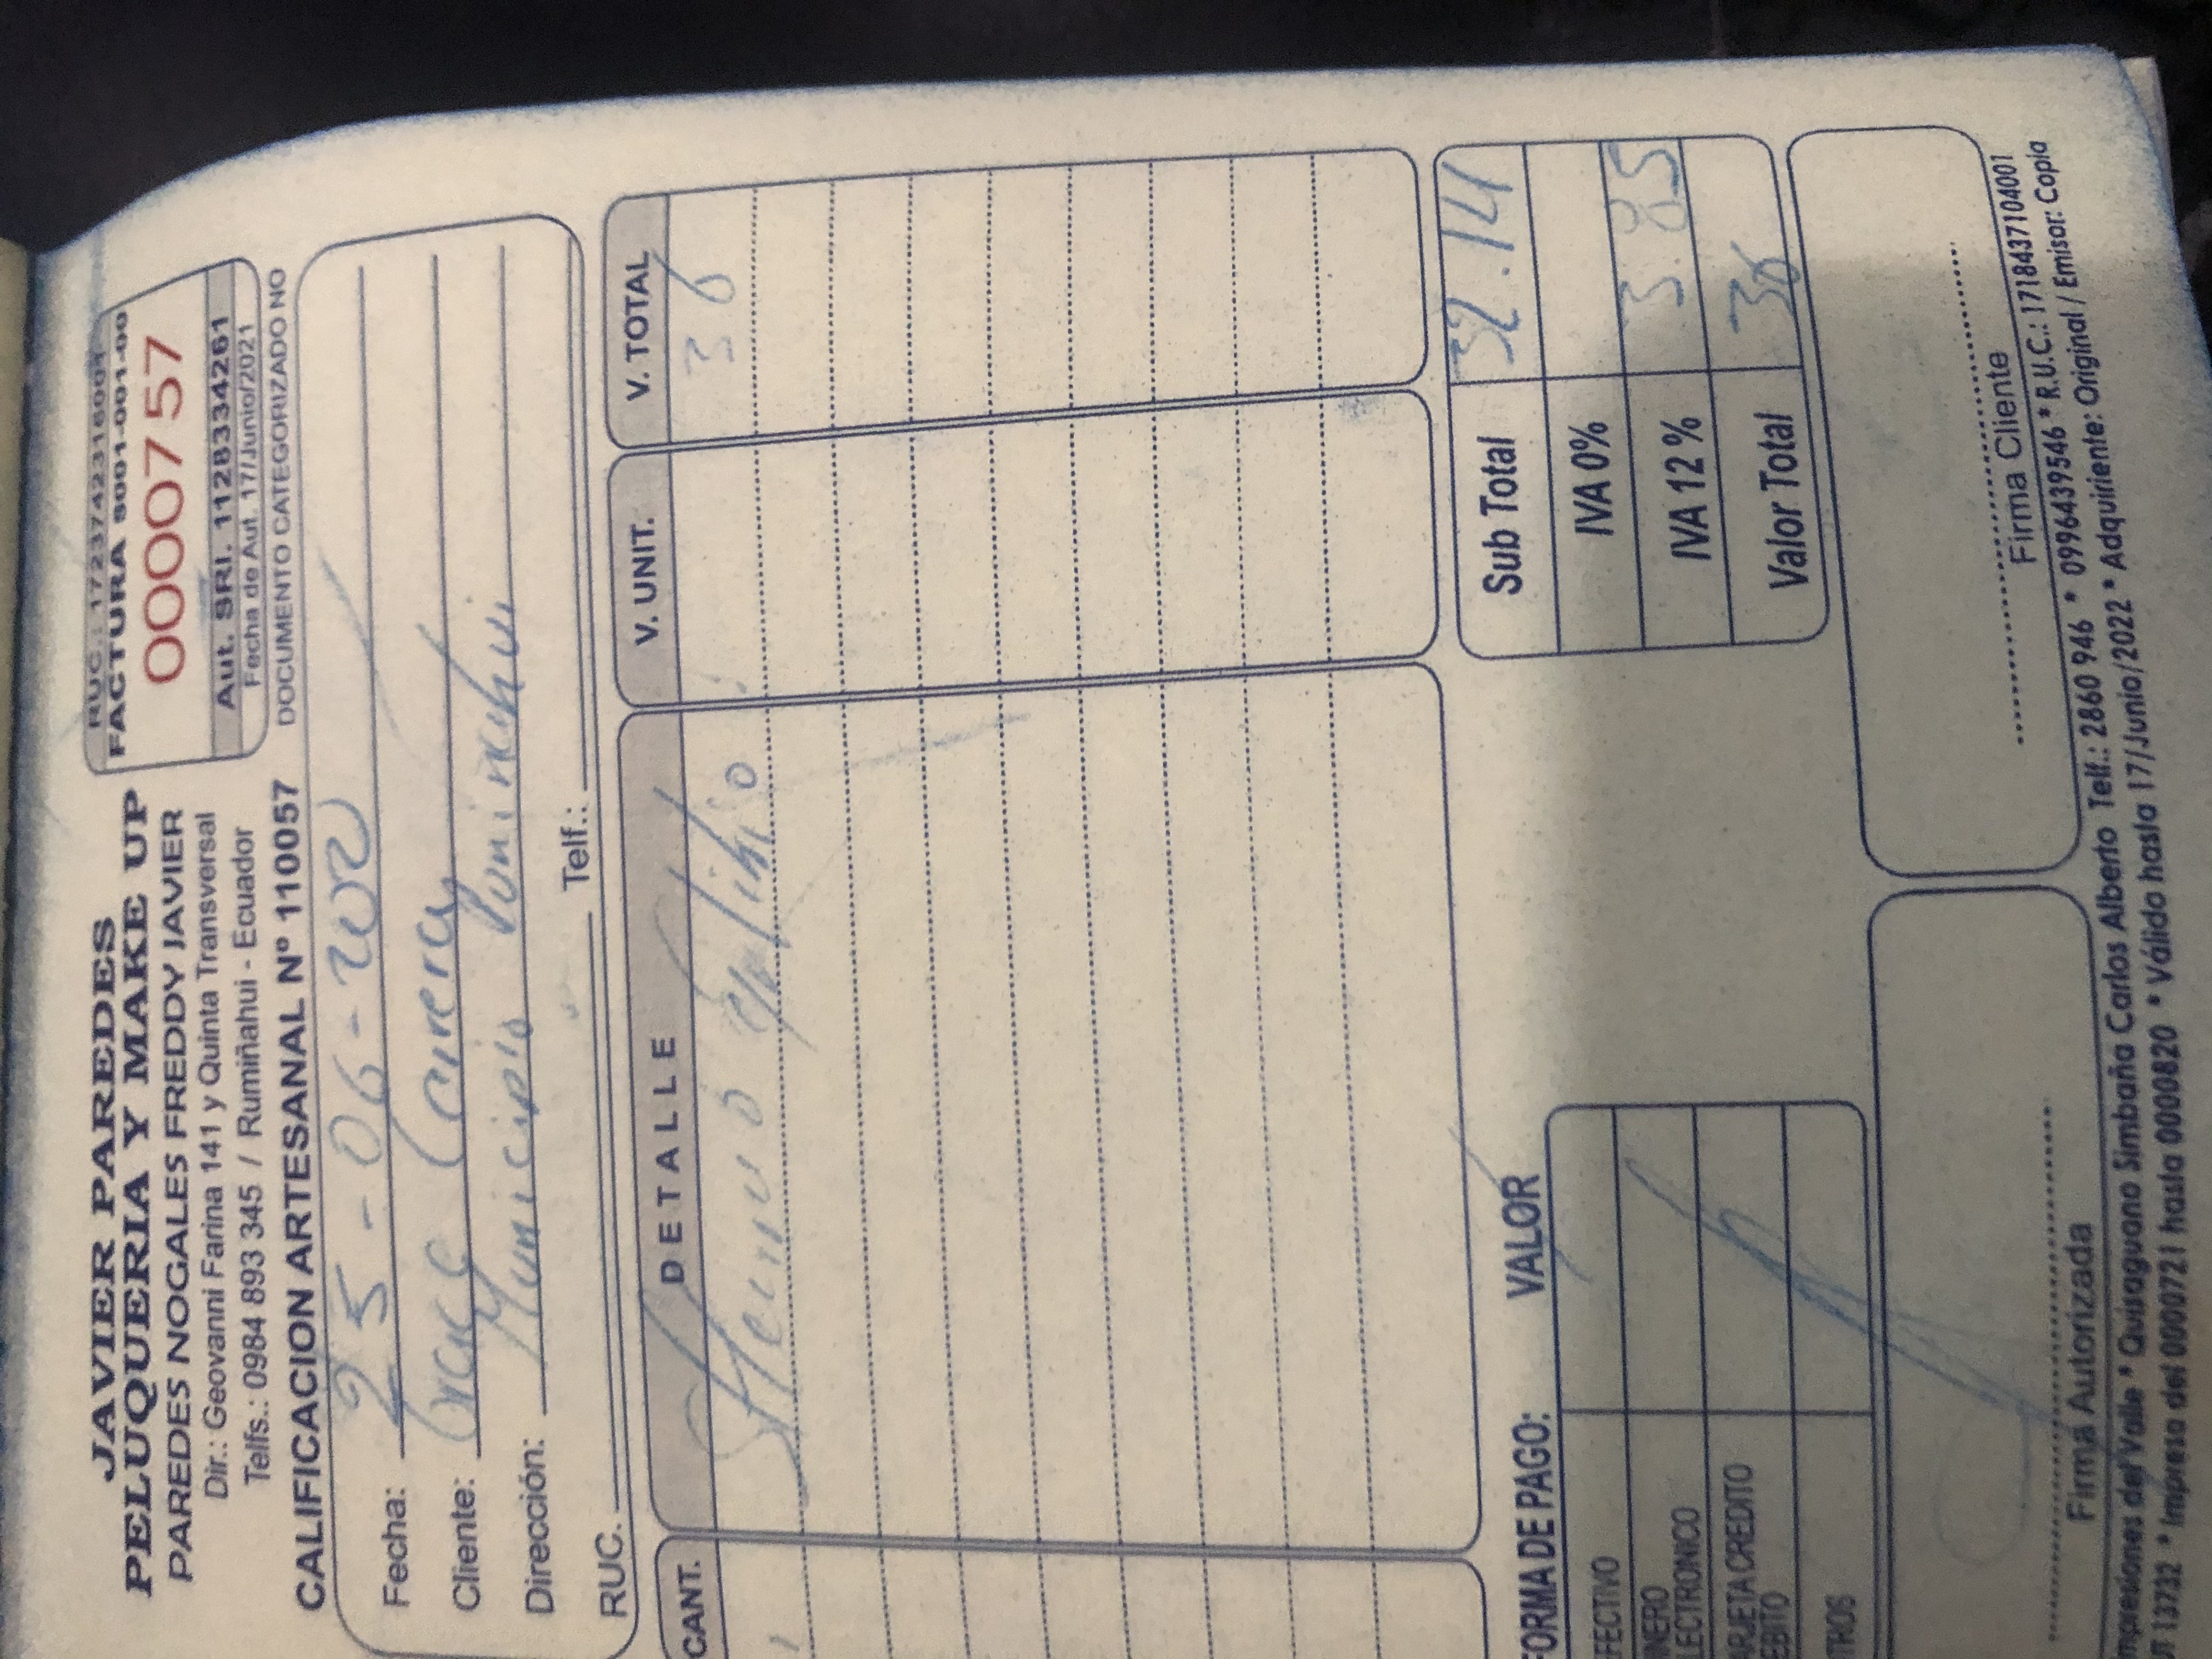 JAVIER PAREDES
PELUQUERIA Y MAKE UP
PAREDES NOGALES FREDDY JAVIER
Dir.: Geovanni Farina 141 y Quinta Transversal
Telfs.: 0984 893 345 / Rumiñahui - Ecuador
CALIFICACION ARTESANAL Nº 110057
RUC.: 1723742316001
FACTURA S001-001-00
0000757
Aut. SRI. 1128334261
Fecha de Aut. 17/Junio/2021
DOCUMENTO CATEGORIZADO NO
Fecha: 25-06-202
Cliente: Carrera
Dirección: Municipio Ruminahui
RUC. Telf.:
CANT. DETALLE V. UNIT. V. TOTAL
1 36
Sub Total 32.14
IVA 0%
IVA 12 % 3.85
Valor Total 36
FORMA DE PAGO: VALOR
EFECTIVO
INERO
LECTRONICO
ARJETA CREDITO
EBITO
TROS
Firma Autorizada
Firma Cliente
Impresiones del Valle * Quisaguano Simbaña Carlos Alberto Telf.: 2860 946 * 0996439546 * R.U.C.: 1718437104001
UT 13732 * Impreso del 0000721 hasta 0000820 * Válido hasta 17/Junio/2022 * Adquiriente: Original / Emisor: Copia